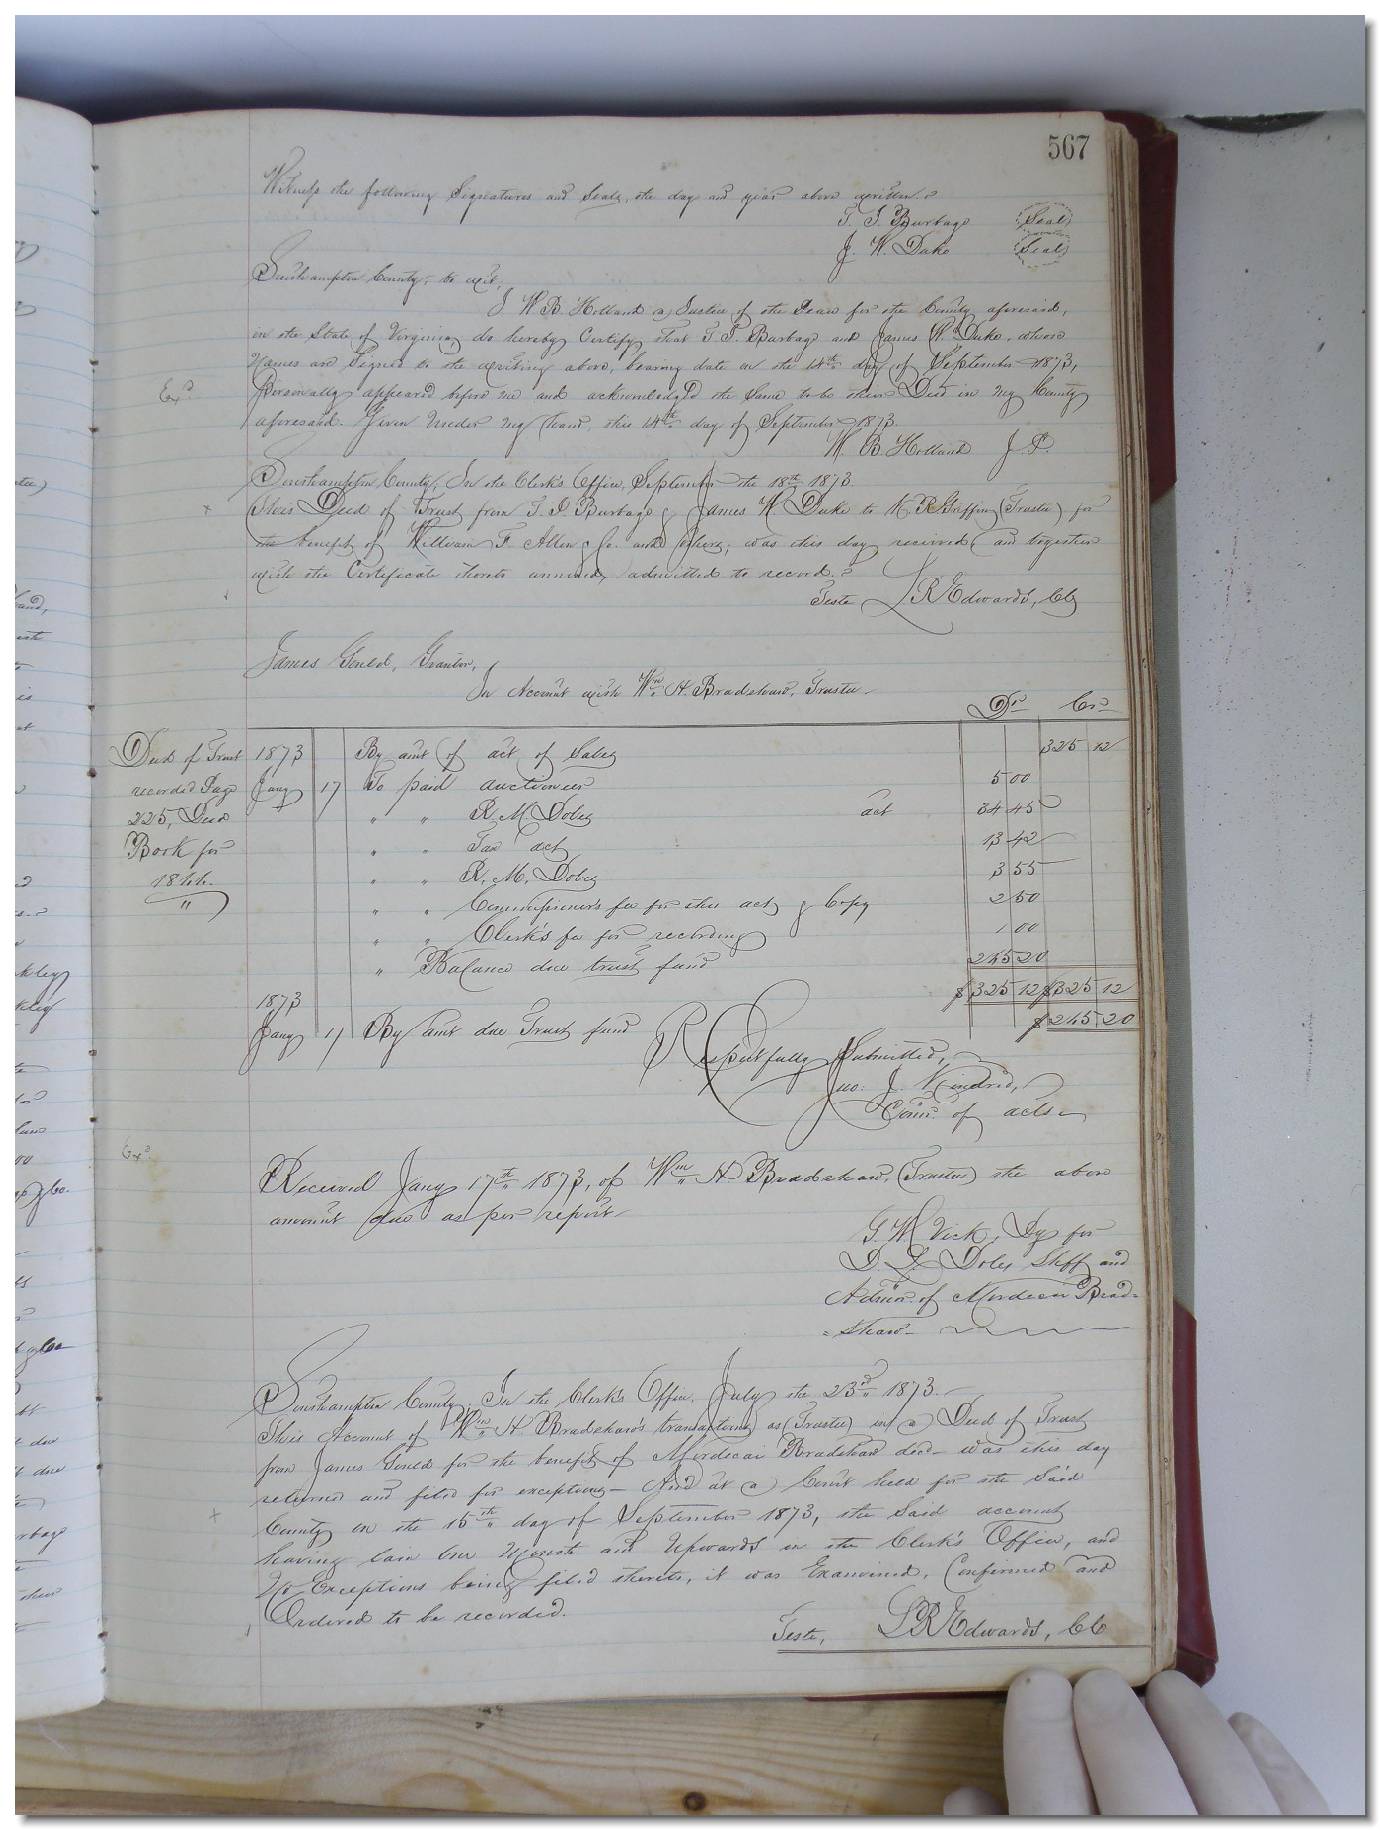 567
Witness the following Signatures and Seals, the day and year above written.
T. J. Burbage Seal
J. W. Duke Seal
Southampton County, to wit,
I W. B. Holland a Justice of the Peace for the County aforesaid,
in the State of Virginia, do hereby Certify that T. J. Burbage and James W. Duke, whose
Names are Signed to the writing above, bearing date on the 14th day of September 1873,
Exd.
personally appeared before me and acknowledged the same to be their Deed in my County
aforesaid. Given under my hand, this 14th day of September 1873.
W. B. Holland J. P.
Southampton County, In the Clerk's Office, September the 18th 1873.
This Deed of Trust from T. J. Burbage & James W Duke to R Griffin (Trustee) for
the benefit of William F Allen & Co. and others, was this day received, and together
with the Certificate thereto annexed, admitted to record.
Teste L R Edwards, Clk
James Gould, Grantor,
In Account with Wm. H. Bradshaw, Trustee
Dr. Cr.
1873 By amt of act of Sales 325 12
Jany 17 To paid auctioneer 5 00
" " R. M. Doles act 34 45
" " Tax act 13 42
" " R. M. Doles 3 55
" " Commissioner's fee for this act & Copy 2 50
" " Clerk's fee for recording 1 00
" Balance due trust fund 265 20
$325 12 $325 12
1873
Jany 17 By amt due Trust fund $265 20
Deed of Trust
recorded Page
225, Deed
Book for
1866.
"
Respectfully Submitted,
Jno. J. Kindred,
Comr. of acts
Exd.
Received Jany 17th 1873, of Wm H. Bradshaw, (Trustee) the above
amount due as per report
G. W. Vick, Dy for
Doles Shff and
Admr. of Mordecai Brad=
=shaw
Southampton County, In the Clerk's Office, July the 23rd 1873.
This Account of Wm. H. Bradshaw's transactions as (Trustee) in a Deed of Trust
from James Gould for the benefit of Mordecai Bradshaw decd was this day
returned and filed for exceptions — And at a Court held for the Said
County on the 15th day of September 1873, the Said account
having lain one Month and Upwards in the Clerk's Office, and
No Exceptions being filed thereto, it was Examined, Confirmed and
Ordered to be recorded.
Teste, L R Edwards, Clk